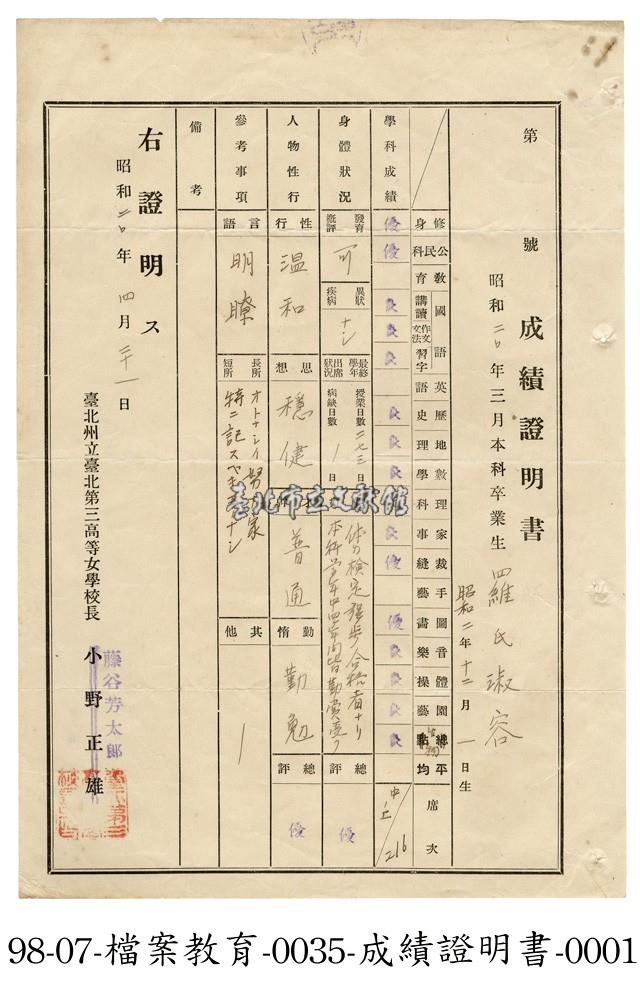 第 號
成績證明書
昭和二〇年三月本科卒業生 羅氏淑容
昭和二年十二月一日生
學科成績
修身 優
公民科 優
教育
國語 講讀 良
作文 文法 良
習字
英語
歷史 良
地理 良
數學 良
理科 良
家事 良
裁縫 優
手藝
圖畫 優
音樂 良
體操 良
園藝 良
總點
平均
席次 中上/216
身體狀況
發育概評 可
異狀疾病 ナシ
最終學年出席狀況
授業日數 二七三日
病缺日數 1日
体力検定
合格者ナリ
本科
皆勤賞受ク
總評 優
人物性行
性行 温和
思想 穩健
普通
勤惰 勤勉
總評 優
參考事項
言語 明瞭
長所 オトナシイ努力家
短所 特ニ記スベキナシ
其他 1
備考
右證明ス
昭和二〇年四月二十一日
臺北州立臺北第三高等女學校長 小野正雄
藤谷芳太郎
臺北市立文獻館
98-07-檔案教育-0035-成績證明書-0001